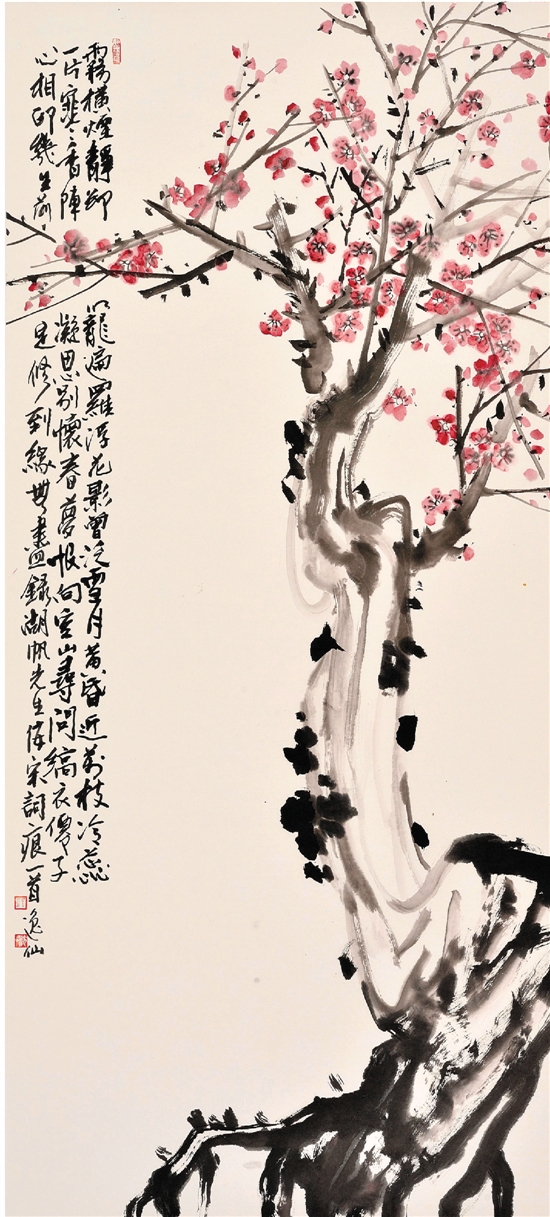 霧橫煙靜却籠遍羅浮花影曾泛雪月黃昏近萬枝冷蕊
一片寒〻香陣凝思別懷春夢恨向空山尋問縞衣僊子
心相印幾生前是修到緣無盡錄湖帆先生佞宋詞痕一首
逸仙